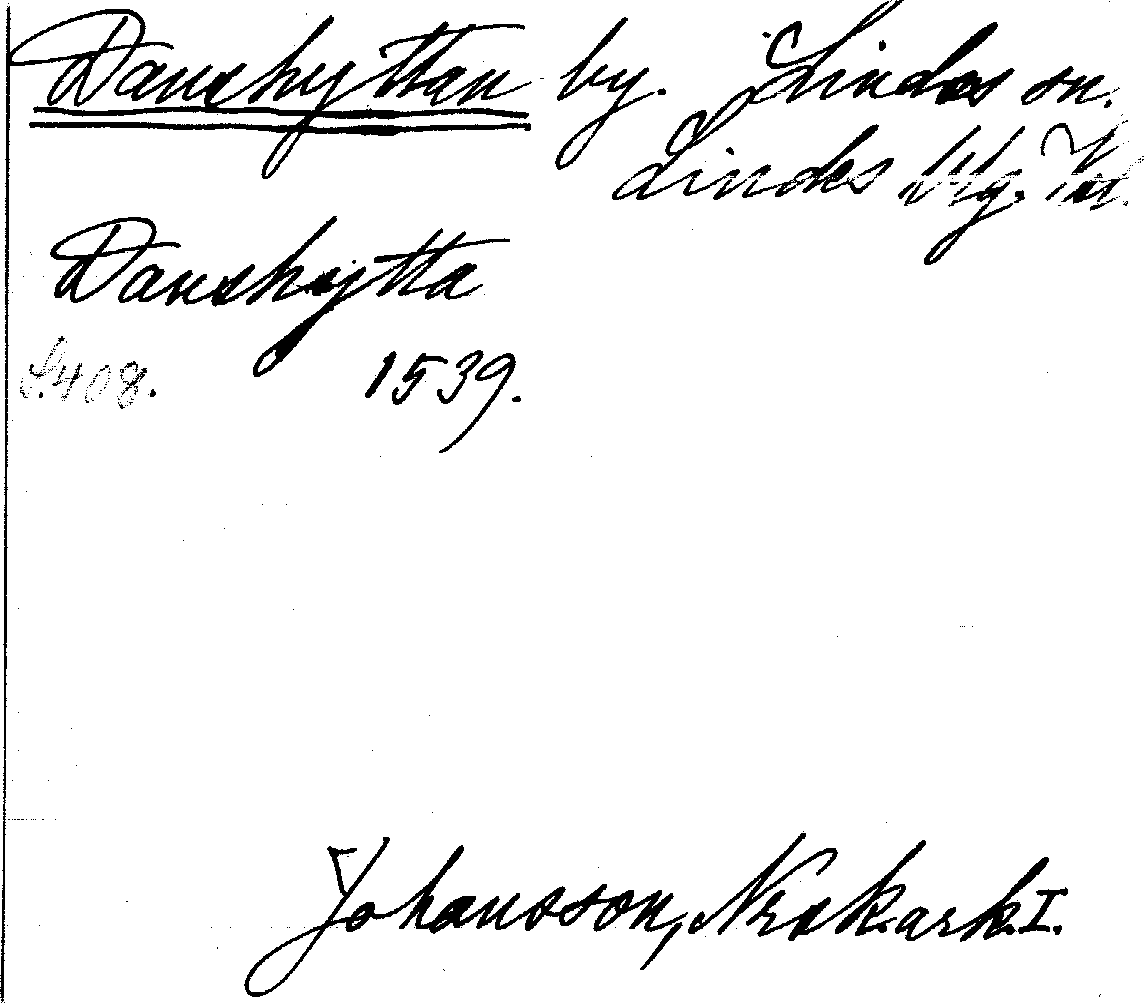 Danshyttan by. Lindes sn.
Lindes
Danshytta
S. 408. 1539.
Johansson, Noraskog. ark. I.